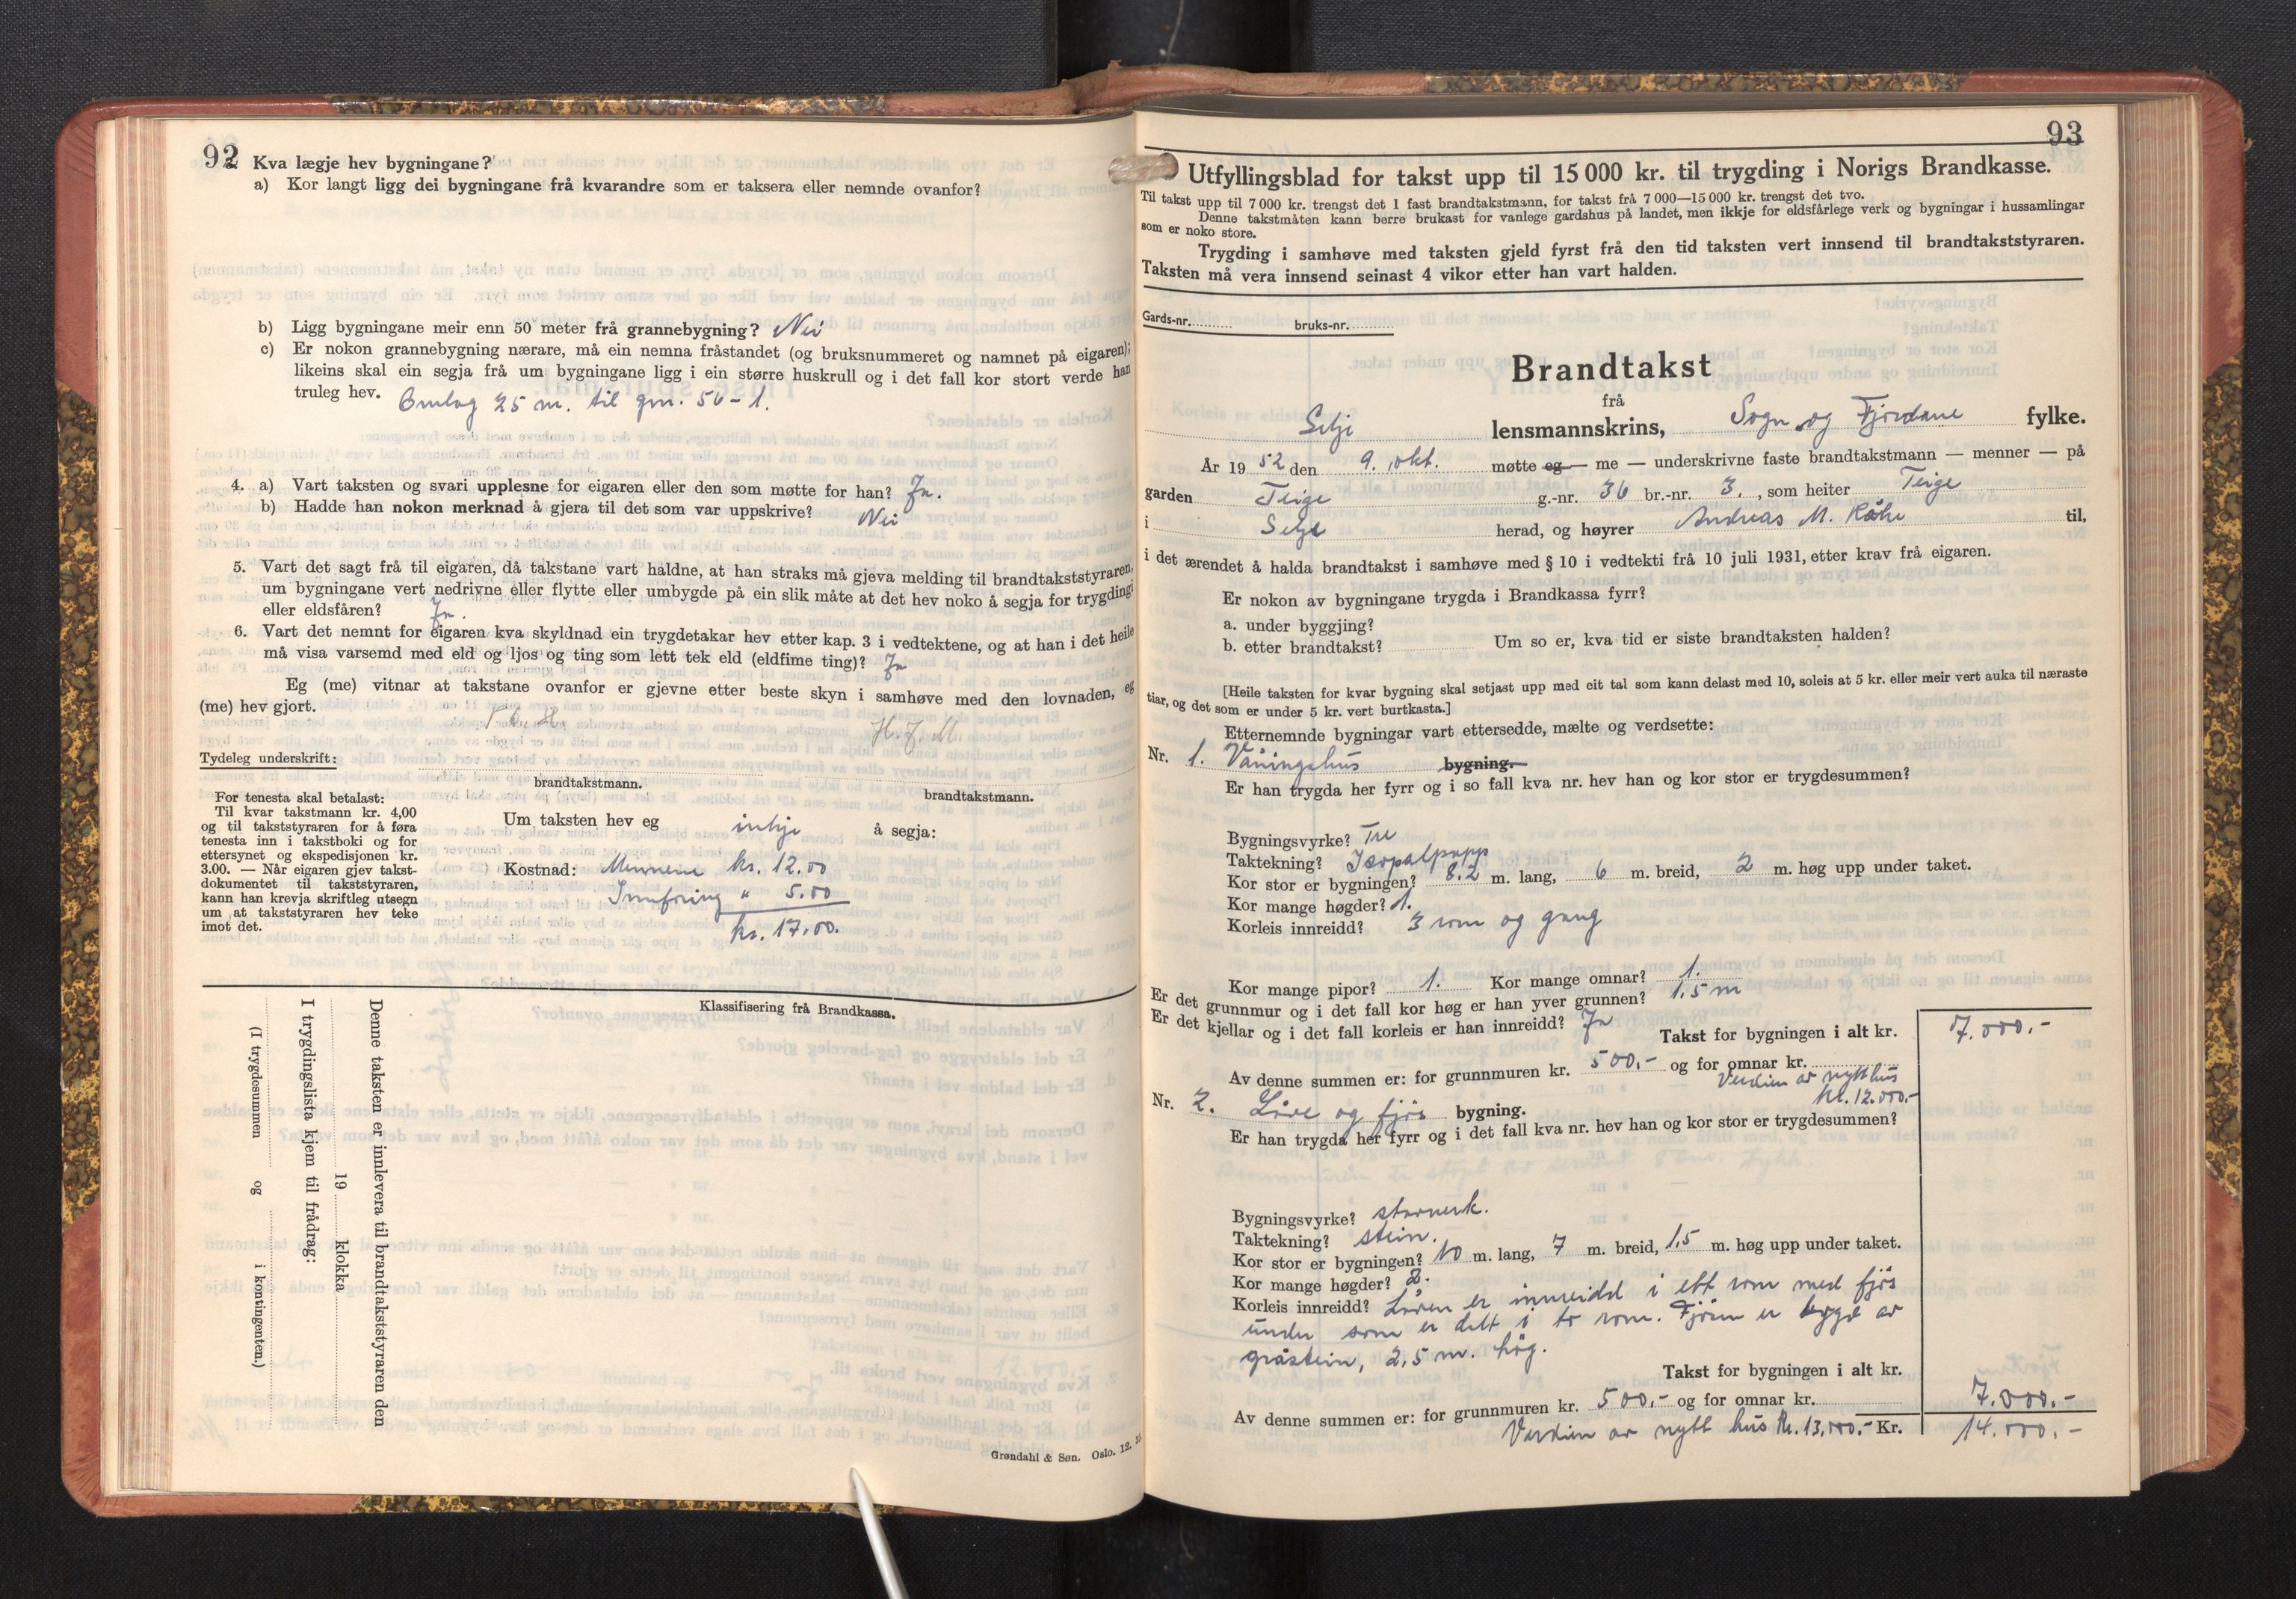 92
Kva lægje hev bygningane?
a) Kor langt ligg dei bygningane frå kvarandre som er taksera eller nemnde ovanfor?
b) Ligg bygningane meir enn 50 meter frå grannebygning? Nei
c) Er nokon grannebygning nærare, må ein nemna fråstandet (og bruksnummeret og namnet på eigaren);
likeins skal ein segja frå um bygningane ligg i ein større huskrull og i det fall kor stort verde han
truleg hev. Omlag 25 m. til gnr. 50-1.
4. a) Vart taksten og svari upplesne for eigaren eller den som møtte for han? Ja.
b) Hadde han nokon merknad å gjera til det som var uppskrive? Nei
5. Vart det sagt frå til eigaren, då takstane vart haldne, at han straks må gjeva melding til brandtakststyraren,
um bygningane vert nedrivne eller flytte eller umbygde på ein slik måte at det hev noko å segja for trygdingi
eller eldsfåren? Ja.
6. Vart det nemnt for eigaren kva skyldnad ein trygdetakar hev etter kap. 3 i vedtektene, og at han i det heile
må visa varsemd med eld og ljos og ting som lett tek eld (eldfime ting)? Ja
Eg (me) vitnar at takstane ovanfor er gjevne etter beste skyn i samhøve med den lovnaden, eg
(me) hev gjort.
H. J. M.
Tydeleg underskrift:
brandtakstmann.
brandtakstmann.
For tenesta skal betalast:
Til kvar takstmann kr. 4,00
og til takststyraren for å føra
tenesta inn i takstboki og for
ettersynet og ekspedisjonen kr.
3.00. — Når eigaren gjev takst-
dokumentet til takststyraren,
kann han krevja skriftleg utsegn
um at takststyraren hev teke
imot det.
Um taksten hev eg inkje å segja:
Kostnad: Mennene kr. 12.00
Innføring " 5.00
kr. 17.00.
Klassifisering frå Brandkassa.
Denne taksten er innlevera til brandtakststyraren den
19 klokka
I trygdingslista kjem til frådrag:
(I trygdesummen og i kontingenten.)
Grøndahl & Søn. Oslo. 12.
93
Utfyllingsblad for takst upp til 15 000 kr. til trygding i Norigs Brandkasse.
Til takst upp til 7 000 kr. trengst det 1 fast brandtakstmann, for takst frå 7 000—15 000 kr. trengst det tvo.
Denne takstmåten kann berre brukast for vanlege gardshus på landet, men ikkje for eldsfårlege verk og bygningar i hussamlingar
som er noko store.
Trygding i samhøve med taksten gjeld fyrst frå den tid taksten vert innsend til brandtakststyraren.
Taksten må vera innsend seinast 4 vikor etter han vart halden.
Gards-nr. bruks-nr.
Brandtakst
frå
Selje lensmannskrins, Sogn og Fjordane fylke.
År 1952 den 9. okt. møtte eg — me — underskrivne faste brandtakstmann — menner — på
garden Teige g.-nr. 36 br.-nr. 3., som heiter Teige
i Selje herad, og høyrer Andreas M. Råke til,
i det ærendet å halda brandtakst i samhøve med § 10 i vedtekti frå 10 juli 1931, etter krav frå eigaren.
Er nokon av bygningane trygda i Brandkassa fyrr?
a. under byggjing?
b. etter brandtakst? Um so er, kva tid er siste brandtaksten halden?
[Heile taksten for kvar bygning skal setjast upp med eit tal som kann delast med 10, soleis at 5 kr. eller meir vert auka til næraste
tiar, og det som er under 5 kr. vert burtkasta.]
Etternemnde bygningar vart ettersedde, mælte og verdsette:
Nr. 1. Våningshus bygning.
Er han trygda her fyrr og i so fall kva nr. hev han og kor stor er trygdesummen?
Bygningsvyrke? Tre
Taktekning? Isopalpapp
Kor stor er bygningen? 8.2 m. lang, 6 m. breid, 2 m. høg upp under taket.
Kor mange høgder? 1.
Korleis innreidd? 3 rom og gang
Kor mange pipor? 1. Kor mange omnar? 1.
Er det grunnmur og i det fall kor høg er han yver grunnen? 1,5 m
Er det kjellar og i det fall korleis er han innreidd? Ja
Takst for bygningen i alt kr. 7.000.-
Av denne summen er: for grunnmuren kr. 500.- og for omnar kr.
Verdien av nytt hus
kr. 12.000.-
Nr. 2. Löe og fjös bygning.
Er han trygda her fyrr og i det fall kva nr. hev han og kor stor er trygdesummen?
Bygningsvyrke? stavverk.
Taktekning? stein.
Kor stor er bygningen? 10 m. lang, 7 m. breid, 1,5 m. høg upp under taket.
Kor mange høgder? 2.
Korleis innreidd? Löen er innreidd i ett rom med fjös
under som er delt i to rom. Fjösen er bygd av
gråstein, 2,5 m. høg.
Takst for bygningen i alt kr. 7.000.-
Av denne summen er: for grunnmuren kr. 500.- og for omnar kr.
Verdien av nytt hus kr. 13.000.- Kr. 14.000.-